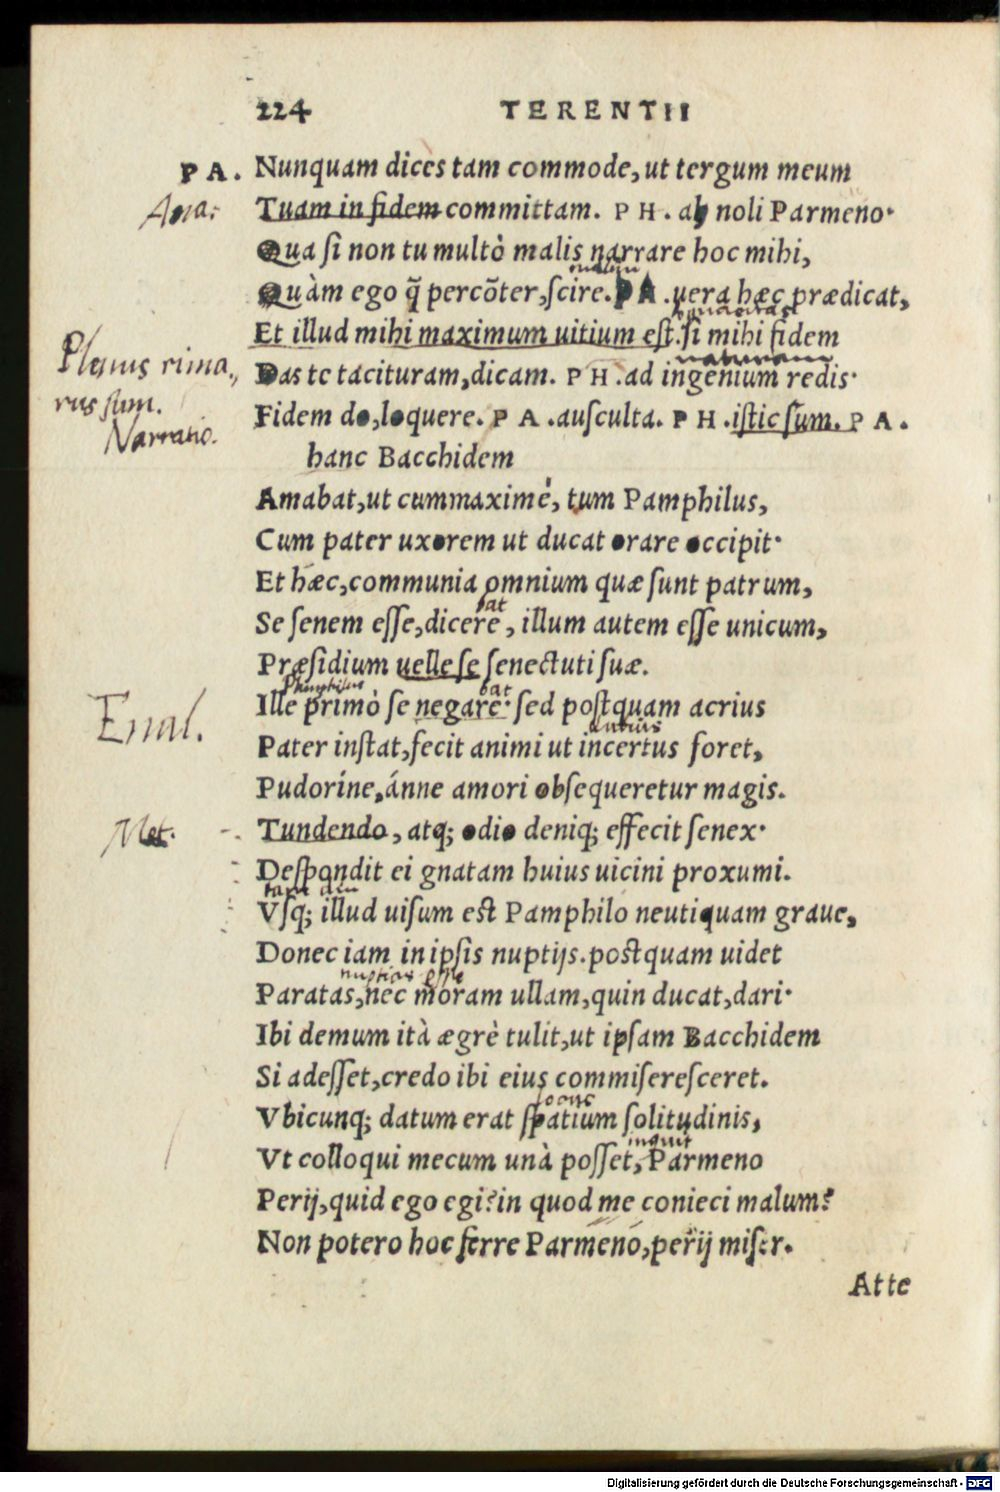 224 TERENTII
PA. Nunquam dices tam commode, ut tergum meum
Tuam in fidem committam. PH. ah noli Parmeno·
Qua si non tu multò malis narrare hoc mihi,
Quàm ego q̃ percõter, scire. PA. uera hæc prædicat,
Et illud mihi maximum uitium est. si mihi fidem
naturam
Das te tacituram, dicam. PH. ad ingenium redis·
Plenus rima,,
rus sum.
Fidem do, loquere. PA. ausculta. PH. istic sum. PA.
Narratio.
hanc Bacchidem
Amabat, ut cummaximé, tum Pamphilus,
Cum pater uxorem ut ducat orare occipit·
Et hæc, communia omnium quæ sunt patrum,
bat
Se senem esse, dicere, illum autem esse unicum,
Præsidium uelle se senectuti suæ.
Phamphilus bat
Ille primò se negare· sed postquam acrius
Enal.
Pater instat, fecit animi ut incertus foret,
Pudoríne, ánne amori obsequeretur magis.
Met.
Tundendo, atq; odio deniq; effecit senex·
Despondit ei gnatam huius uicini proxumi.
tam diu
Vsq; illud uisum est Pamphilo neutiquam graue,
Donec iam in ipsis nuptijs. postquam uidet
nuptias esse
Paratas, nec moram ullam, quin ducat, dari·
Ibi demum ità ægrè tulit, ut ipsam Bacchidem
Si adesset, credo ibi eius commiseresceret.
Vbicunq; datum erat spatium solitudinis,
inquit
Vt colloqui mecum unà posset, Parmeno
Perij, quid ego egi? in quod me conieci malum?
Non potero hoc ferre Parmeno, perij miser.
Atte
Digitalisierung gefördert durch die Deutsche Forschungsgemeinschaft - DFG